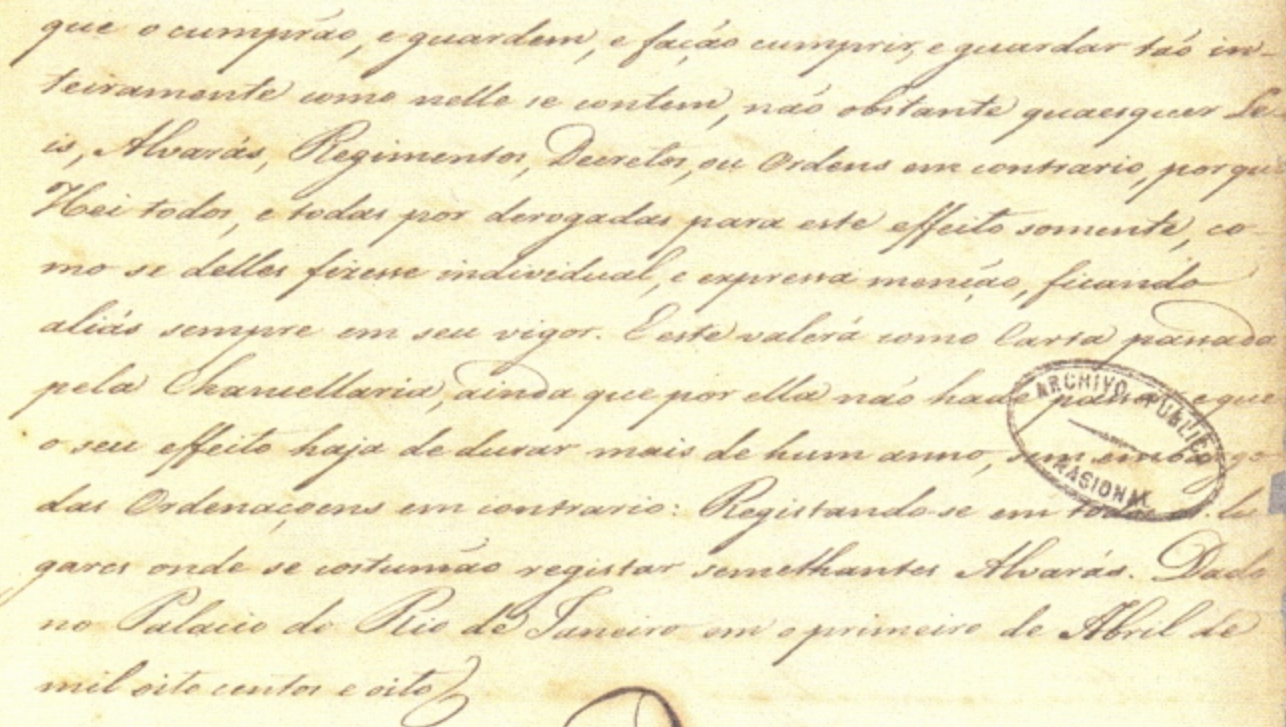 que o cumprão, e guardem, e fação cumprir, e guardar tão in-
teiramente como nelle se contem, não obstante quaesquer Le-
is, Alvarás, Regimentos, Decretos, ou Ordens em contrario, porque
Hei todos, e todas por derogadas para este effeito somente, co-
mo se delles fizesse individual, e expressa menção, ficando
aliás sempre em seu vigor. E este valerá como Carta passada
pela Chancellaria, ainda que por ella não hade passar, e que
o seu effeito haja de durar mais de hum anno, sem embargo
das Ordenaçoens em contrario: Registando-se em todos os lu-
gares onde se costumão registar semelhantes Alvarás. Dado
no Palacio do Rio de Janeiro em o primeiro de Abril de
mil oito centos e oito
ARCHIVO PUBLICO
NASIONAL